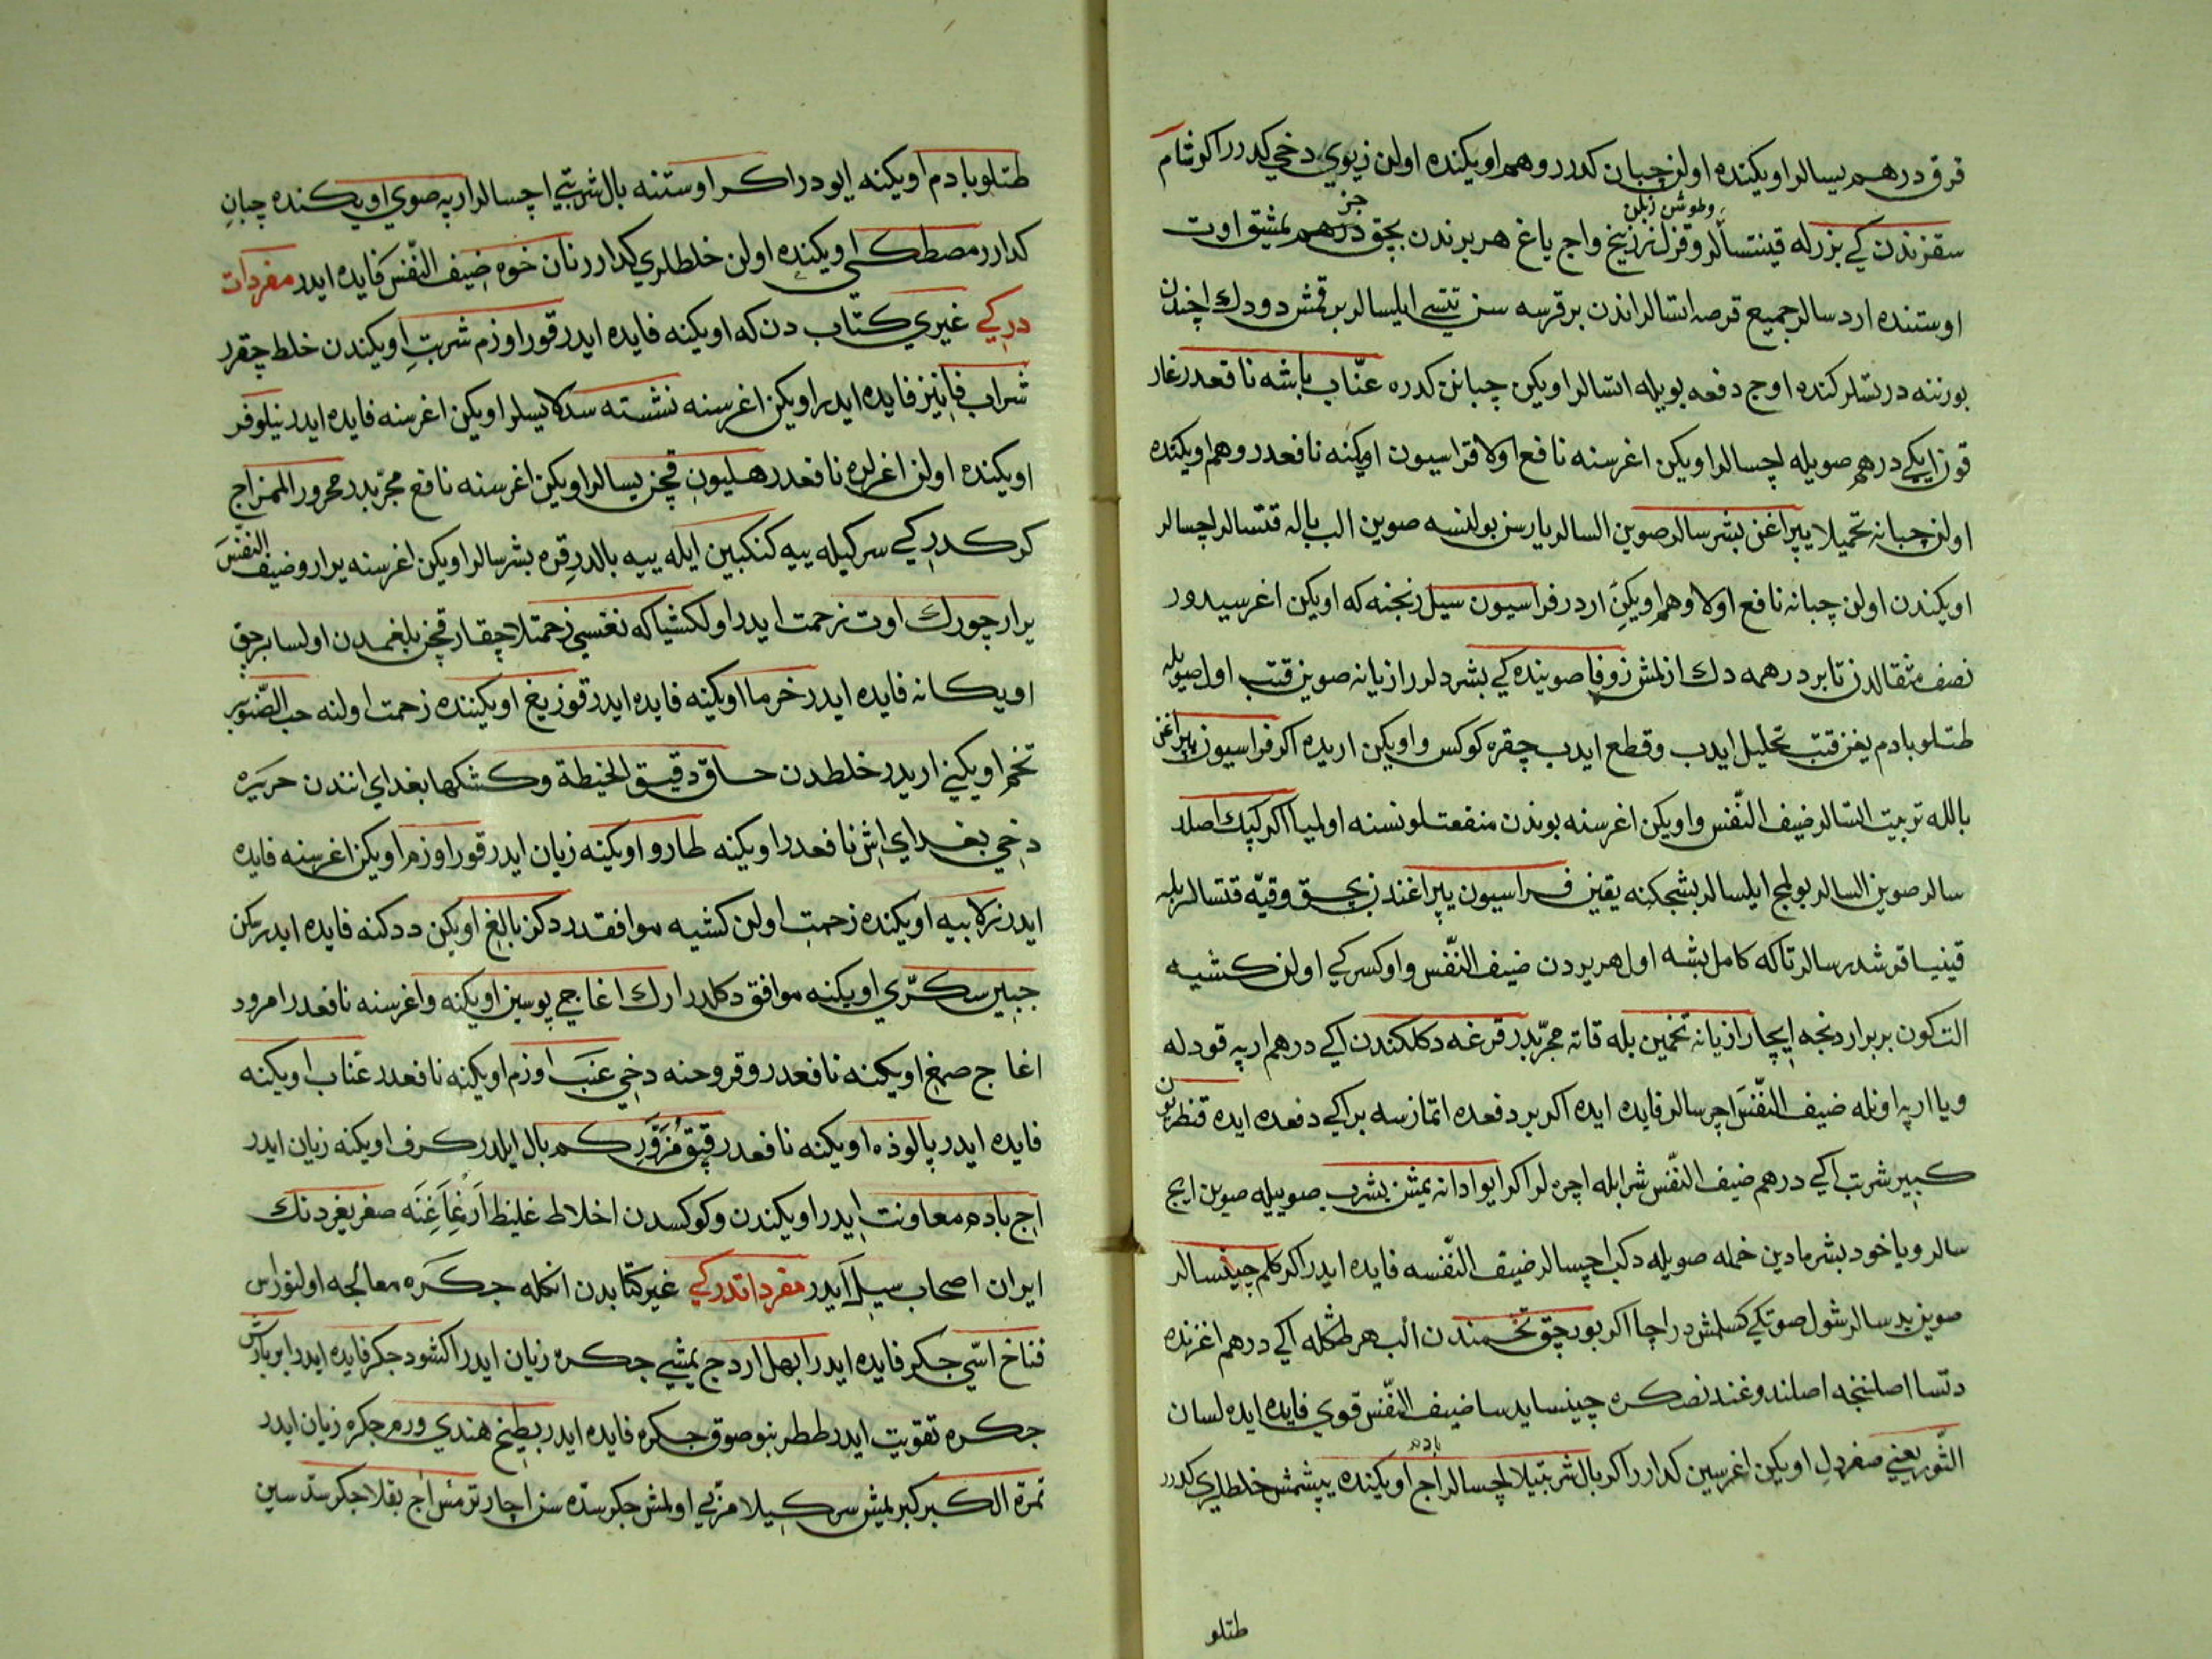 قرق درهم یسالر اویکنده اولن چبان کدرر وهم اویکنده اولن زیوي دخي کدرر اکر شام
سقزندن کي بزرله قینتسالر وقزل زرنیخ واج یاغ هر برندن بچق درهم یمشیق اوت
وطوشن زبلن
جز
اوستنده اردسالر جمیع قرصه اتسالر اندن بر قرسه سن تتسي ایلسالر بر قمش دودك اچندن
بورننه درتسلر کنده اوچ دفعه بویله اتسالر اویکن چبانن کدره عنّاب باشه نافعدر غار
قوزن ایکي درهم صویله اچسالر اویکن اغرسنه نافع اولا فراسیون اویکنه نافعدر وهم اویکنده
اولن چبانه تحمیلا یپراغن بشرسالر صوین السالر یارسن بولنسه صوین الب باله قتسالر اچسالر
اویکندن اولن چبانه نافع اولا وهم اویکنِ اردر فراسیون سیل رنجنه که اویکن اغرسیدور
نصف مثقالدن تا بر درهمه دك ازلمش زوفا صوینده کي بشردلر رازیانه صوین قتب اول صویله
طتلو بادم یغن قتب تحلیل ایدب وقطع ایدب چقره کوکس واویکن اریده اکر فراسیون یپراغن
بالله تربیت اتسالر ضیف النّفس واویکن اغرسنه بوندن منفعتلو نسنه اولمیا اکر کپك اصلد
سالر صوین السالر بولمج ایلسالر بشجکنه یقین فراسیون یپراغندن بچق وقیّه قتسالر بله
قینیسا قرشدرسالر تا که کامل بشه اول هر یردن ضیف النّفس واوکسرکي اولن کشیه
التی کون بربرار دنجه ایچار رازیانه تخمین بله قاته مجرّبدر قرغه دکلکندن اکي درهم ارپه قودله
ویا ارپه اونله ضیف النّفسَ اچرسالر فایده ایده اکر بر دفعده اتمازسه بر اکي دفعده ایده قنطریون
کبیر شربت اکي درهم ضیف النّفس شرابله اچره لر اکر ایوا دانه یمشن بشرب صوییله صوین ایچ
سالر ویا خود بشرمادین خمله صویله دکب اچسالر ضیف النّفسه فایده ایدر اکر کلم چینسالر
صوین یدسالر شول صوتکي کسلمش در اچا اکر بوریچق تخمندن الب هر طکله اکي درهم اغزنده
دتسا اصلننجه اصلندوغندنصکره چینسا یدسا ضیف النّفس قوي فایده ایده لسان
الثّور یعني صغردلِ اویکن اغرسین کدارر اکر بال شربتیلا اچسالر اج بادم اویکنده پیشمش خلطلري کدرر
طتلو
طتلو بادم اویکنه ایودر اکر اوستنه بال شربتي اچسالر ارپه صوي اویکنده چبانِ
کدارر مصطکي اویکنده اولن خلطلري کدارر نان خوه ضیف النّفسَ فایده ایدر مفردات
در کي غیري کتاب دن که اویکنه فایده ایدر قورا اوزم شربتِ اویکندن خلط چقرر
شراب فانیز فایده ایدر اویکن اغرسنه نشسته سدلا یسلر اویکن اغرسنه فایده ایدر نیلوفر
اویکنده اولن اغرلره نافعدر هلیون قچن یسالر اویکن اغرسنه نافع مجرّبدر محرور المزاج
کرکدر کي سرکیله ییه کنکبین ایله ییه بالدر قره بشرسالر اویکن اغرسنه یرار وضیف النّفسَ
یرار چورك اوت زحمت ایدر اول کشیا که نفسي زحمتلا چقار قچن بلغمدن اولسا برجق
اویکانه فایده ایدر خرما اویکنه فایده ایدر قوزیغ اویکننده زحمت اولنه حب الصّنوبر
تخم اویکینِ اریدر خلطدن حساوّ دقیق الحنیطة وکشکها بغداي انندن حریره
دخي بغداي اش نافعدر اویکنه طارو اویکنه زیان ایدر قورا اوزم اویکن اغرسنه فایده
ایدر زلابیه اویکنده زحمت اولن کشیه موافقدر دکن بالغ اویکن ددکنه فایده ایدر یکن
جبیر سکّري اویکنه موافق دکلدر ارك اغاجي پوسین اویکنه واغرسنه نافعدر امرود
اغاج صمغ اویکنه نافعدر وقروحنه دخي عنَب اوزم اویکنه نافعدر عنّاب اویکنه
فایده ایدر پالوذه اویکنه نافعدر قتق مُزَوّرِ کم بال ایلدر کرف اویکنه زیان ایدر
اج بادم معاونت ایدر اویکندن وکوکسدن اخلاط غلیظ اَرنمَاغِنَه صغر یغر دنك
ایران اصحاب سیلِ ایدر مفرداتدر کي غیر کتابدن انکله جکره معالجه اولنور اس
فناخ اسّي جکر فایده ایدر ابهل اردج یمشي جکره زیان ایدر اکشود جکر فایده ایدر ابرباریس
جکره تقویت ایدر ططر بنو صوق جکره فایده ایدر بطیخ هندي ورم جکره زیان ایدر
ثمرة الکبر کبر یمیش سرکیلا مربّي اولمش جکر سدّه سن اچار ترمس اج بقلا جکر سدّ سین